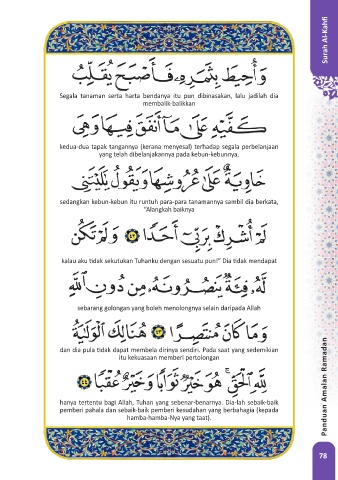 Surah Al-Kahfi
وَأُحِيطَ بِثَمَرِهِۦ فَأَصۡبَحَ يُقَلِّبُ
Segala tanaman serta harta bendanya itu pun dibinasakan, lalu jadilah dia
membalik-balikkan
كَفَّيۡهِ عَلَىٰ مَآ أَنفَقَ فِيهَا وَهِيَ
kedua-dua tapak tangannya (kerana menyesal) terhadap segala perbelanjaan
yang telah dibelanjakannya pada kebun-kebunnya,
خَاوِيَةٌ عَلَىٰ عُرُوشِهَا وَيَقُولُ يَٰلَيۡتَنِي
sedangkan kebun-kebun itu runtuh para-para tanamannya sambil dia berkata,
"Alangkah baiknya
لَمۡ أُشۡرِكۡ بِرَبِّيٓ أَحَدٗا ٤٢ وَلَمۡ تَكُن
kalau aku tidak sekutukan Tuhanku dengan sesuatu pun!" Dia tidak mendapat
لَّهُۥ فِئَةٞ يَنصُرُونَهُۥ مِن دُونِ ٱللَّهِ
sebarang golongan yang boleh menolongnya selain daripada Allah
وَمَا كَانَ مُنتَصِرًا ٤٣ هُنَالِكَ ٱلۡوَلَٰيَةُ
dan dia pula tidak dapat membela dirinya sendiri. Pada saat yang sedemikian
itu kekuasaan memberi pertolongan
لِلَّهِ ٱلۡحَقِّۚ هُوَ خَيۡرٞ ثَوَابٗا وَخَيۡرٌ عُقۡبٗا ٤٤
hanya tertentu bagi Allah, Tuhan yang sebenar-benarnya. Dia-lah sebaik-baik
pemberi pahala dan sebaik-baik pemberi kesudahan yang berbahagia (kepada
hamba-hamba-Nya yang taat).
Panduan Amalan Ramadan
78